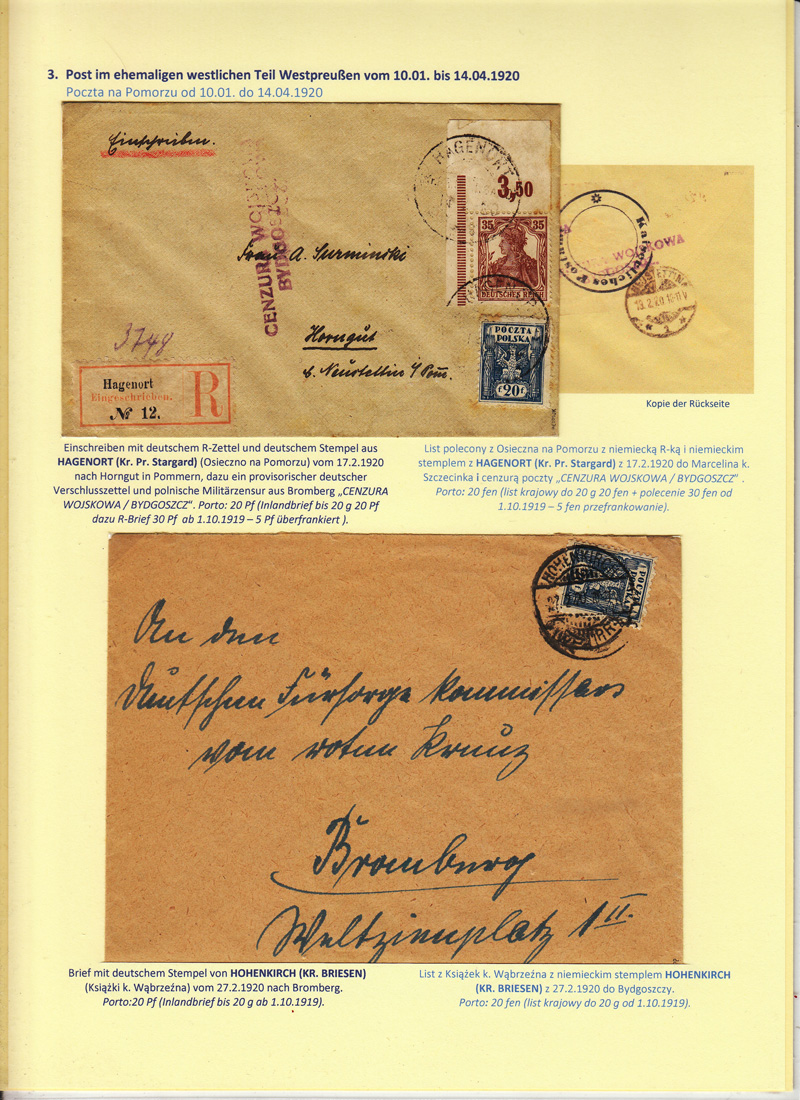 3. Post im ehemaligen westlichen Teil Westpreußen vom 10.01. bis 14.04.1920
Poczta na Pomorzu od 10.01. do 14.04.1920
Einschreiben.
HAGENORT
3,50
CENZURA WOJSKOWA
BYDGOSZCZ
35 35
DEUTSCHES REICH
Frau A. Surminski
POCZTA
POLSKA
f 20 f
Horngut
b. Neustettin i/Pom.
3748
Hagenort
Eingeschrieben.
№ 12.
R
Kaiserliches Postamt
WOJSKOWA
NEUSTETTIN
19.2.20 10-11V
Kopie der Rückseite
Einschreiben mit deutschem R-Zettel und deutschem Stempel aus
HAGENORT (Kr. Pr. Stargard) (Osieczno na Pomorzu) vom 17.2.1920
nach Horngut in Pommern, dazu ein provisorischer deutscher
Verschlusszettel und polnische Militärzensur aus Bromberg „CENZURA
WOJSKOWA / BYDGOSZCZ“. Porto: 20 Pf (Inlandbrief bis 20 g 20 Pf
dazu R-Brief 30 Pf ab 1.10.1919 – 5 Pf überfrankiert ).
List polecony z Osieczna na Pomorzu z niemiecką R-ką i niemieckim
stemplem z HAGENORT (Kr. Pr. Stargard) z 17.2.1920 do Marcelina k.
Szczecinka i cenzurą poczty „CENZURA WOJSKOWA / BYDGOSZCZ“ .
Porto: 20 fen (list krajowy do 20 g 20 fen + polecenie 30 fen od
1.10.1919 – 5 fen przefrankowanie).
HOHENKIRCH
An den
Deutschen Fürsorge Kommissar
vom roten Kreuz
Bromberg
Weltzienplatz 1 II.
Brief mit deutschem Stempel von HOHENKIRCH (KR. BRIESEN)
(Książki k. Wąbrzeźna) vom 27.2.1920 nach Bromberg.
Porto:20 Pf (Inlandbrief bis 20 g ab 1.10.1919).
List z Książek k. Wąbrzeźna z niemieckim stemplem HOHENKIRCH
(KR. BRIESEN) z 27.2.1920 do Bydgoszczy.
Porto: 20 fen (list krajowy do 20 g od 1.10.1919).